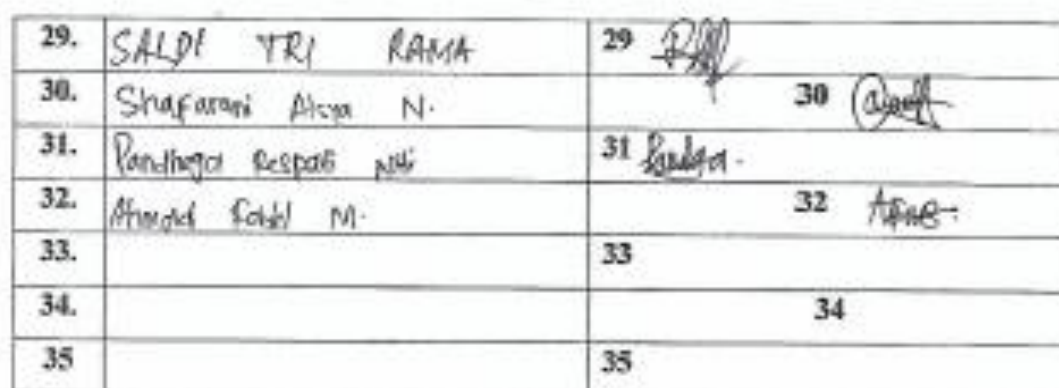 29. SALDI TRI RAMA 29
30. Shafarani Alsya N. 30
31. Pandhega Respati 31
32. Ahmad Fadel M. 32
33. 33
34. 34
35 35